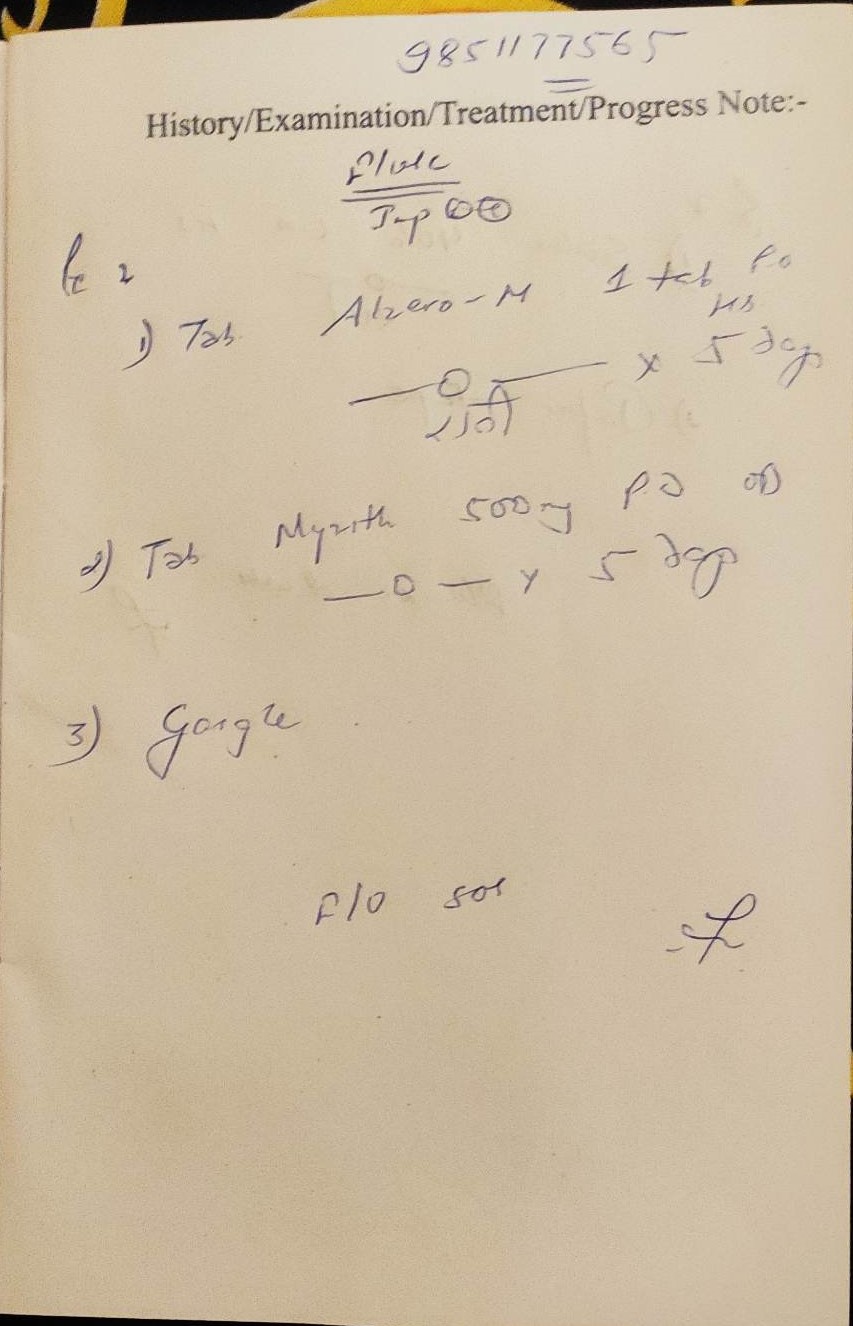 9851177565
History/Examination/Treatment/Progress Note:-
1) Tab Alzero-M 1 tab Po
HS
x 5 day
2) Tab 500mg P.O OD
—O— x 5 day
3) Gargle
F/O sos